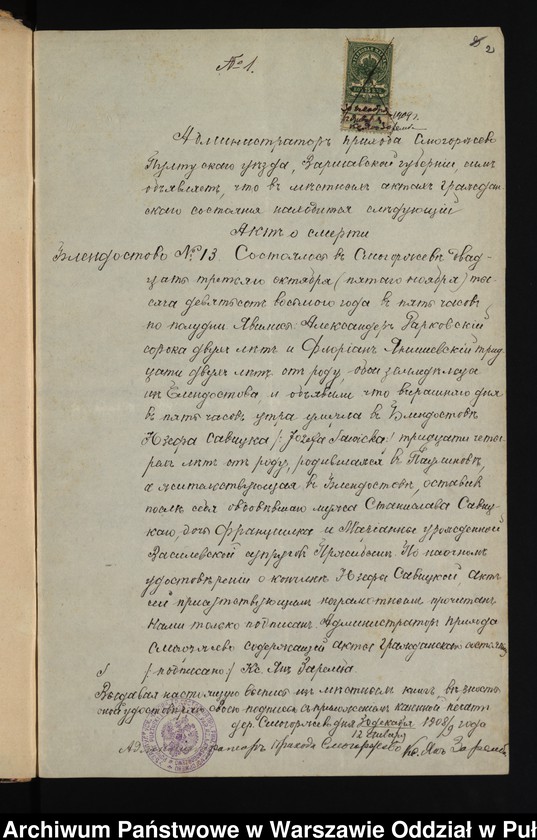 2
№ 1.
1909 г.
Администраторъ прихода Смогоржево
Пултускаго уѣзда, Варшавской губерніи, симъ
объявляетъ, что въ мѣстномъ актахъ граждан
скаго состоянія находится слѣдующій
Актъ о смерти
Блендостово № 13. Состоялось въ Смогоржевѣ двад-
цать третьяго октября (пятаго ноября) ты-
сяча девятьсотъ восьмого года въ пять часовъ
по полудни. Явились: Александеръ Рарковскій
сорока двухъ лѣтъ и Флоріанъ Янишевскій трид
цати двухъ лѣтъ отъ роду, оба земледѣльца
изъ Блендостова, и объявили что вчерашняго дня
въ пять часовъ утра умерла въ Блендостовѣ
Юзефа Савицка /: Józefa Sawicka :/ тридцати четы-
рехъ лѣтъ отъ роду, родившаяся въ Паулиновѣ,
а жительствующая въ Блендостовѣ, оставивъ
послѣ себя овдовѣвшаго мужа Станислава Савиц-
каго, дочь Францишка и Маріанны урожденной
Василевской супруговъ По наочномъ
удостовѣреніи о кончинѣ Юзефы Савицкой, актъ
сей присутствующимъ неграмотнымъ прочитанъ
Нами только подписанъ. Администраторъ прихода
Смогоржево содержащій акты гражданскаго состоянія
/: подписано :/ Кс. Янъ Заремба
Выдавая настоящую выпись изъ мѣстныхъ книгъ, вѣрность
оной удостовѣряю своею подписью съ приложеніемъ казенной печати
дер. Смогоржево дня 30 декабря 1908/9 года
12 января
Администраторъ Прихода Смогоржево Кс. Янъ Заремба
Archiwum Państwowe w Warszawie Oddział w Puł